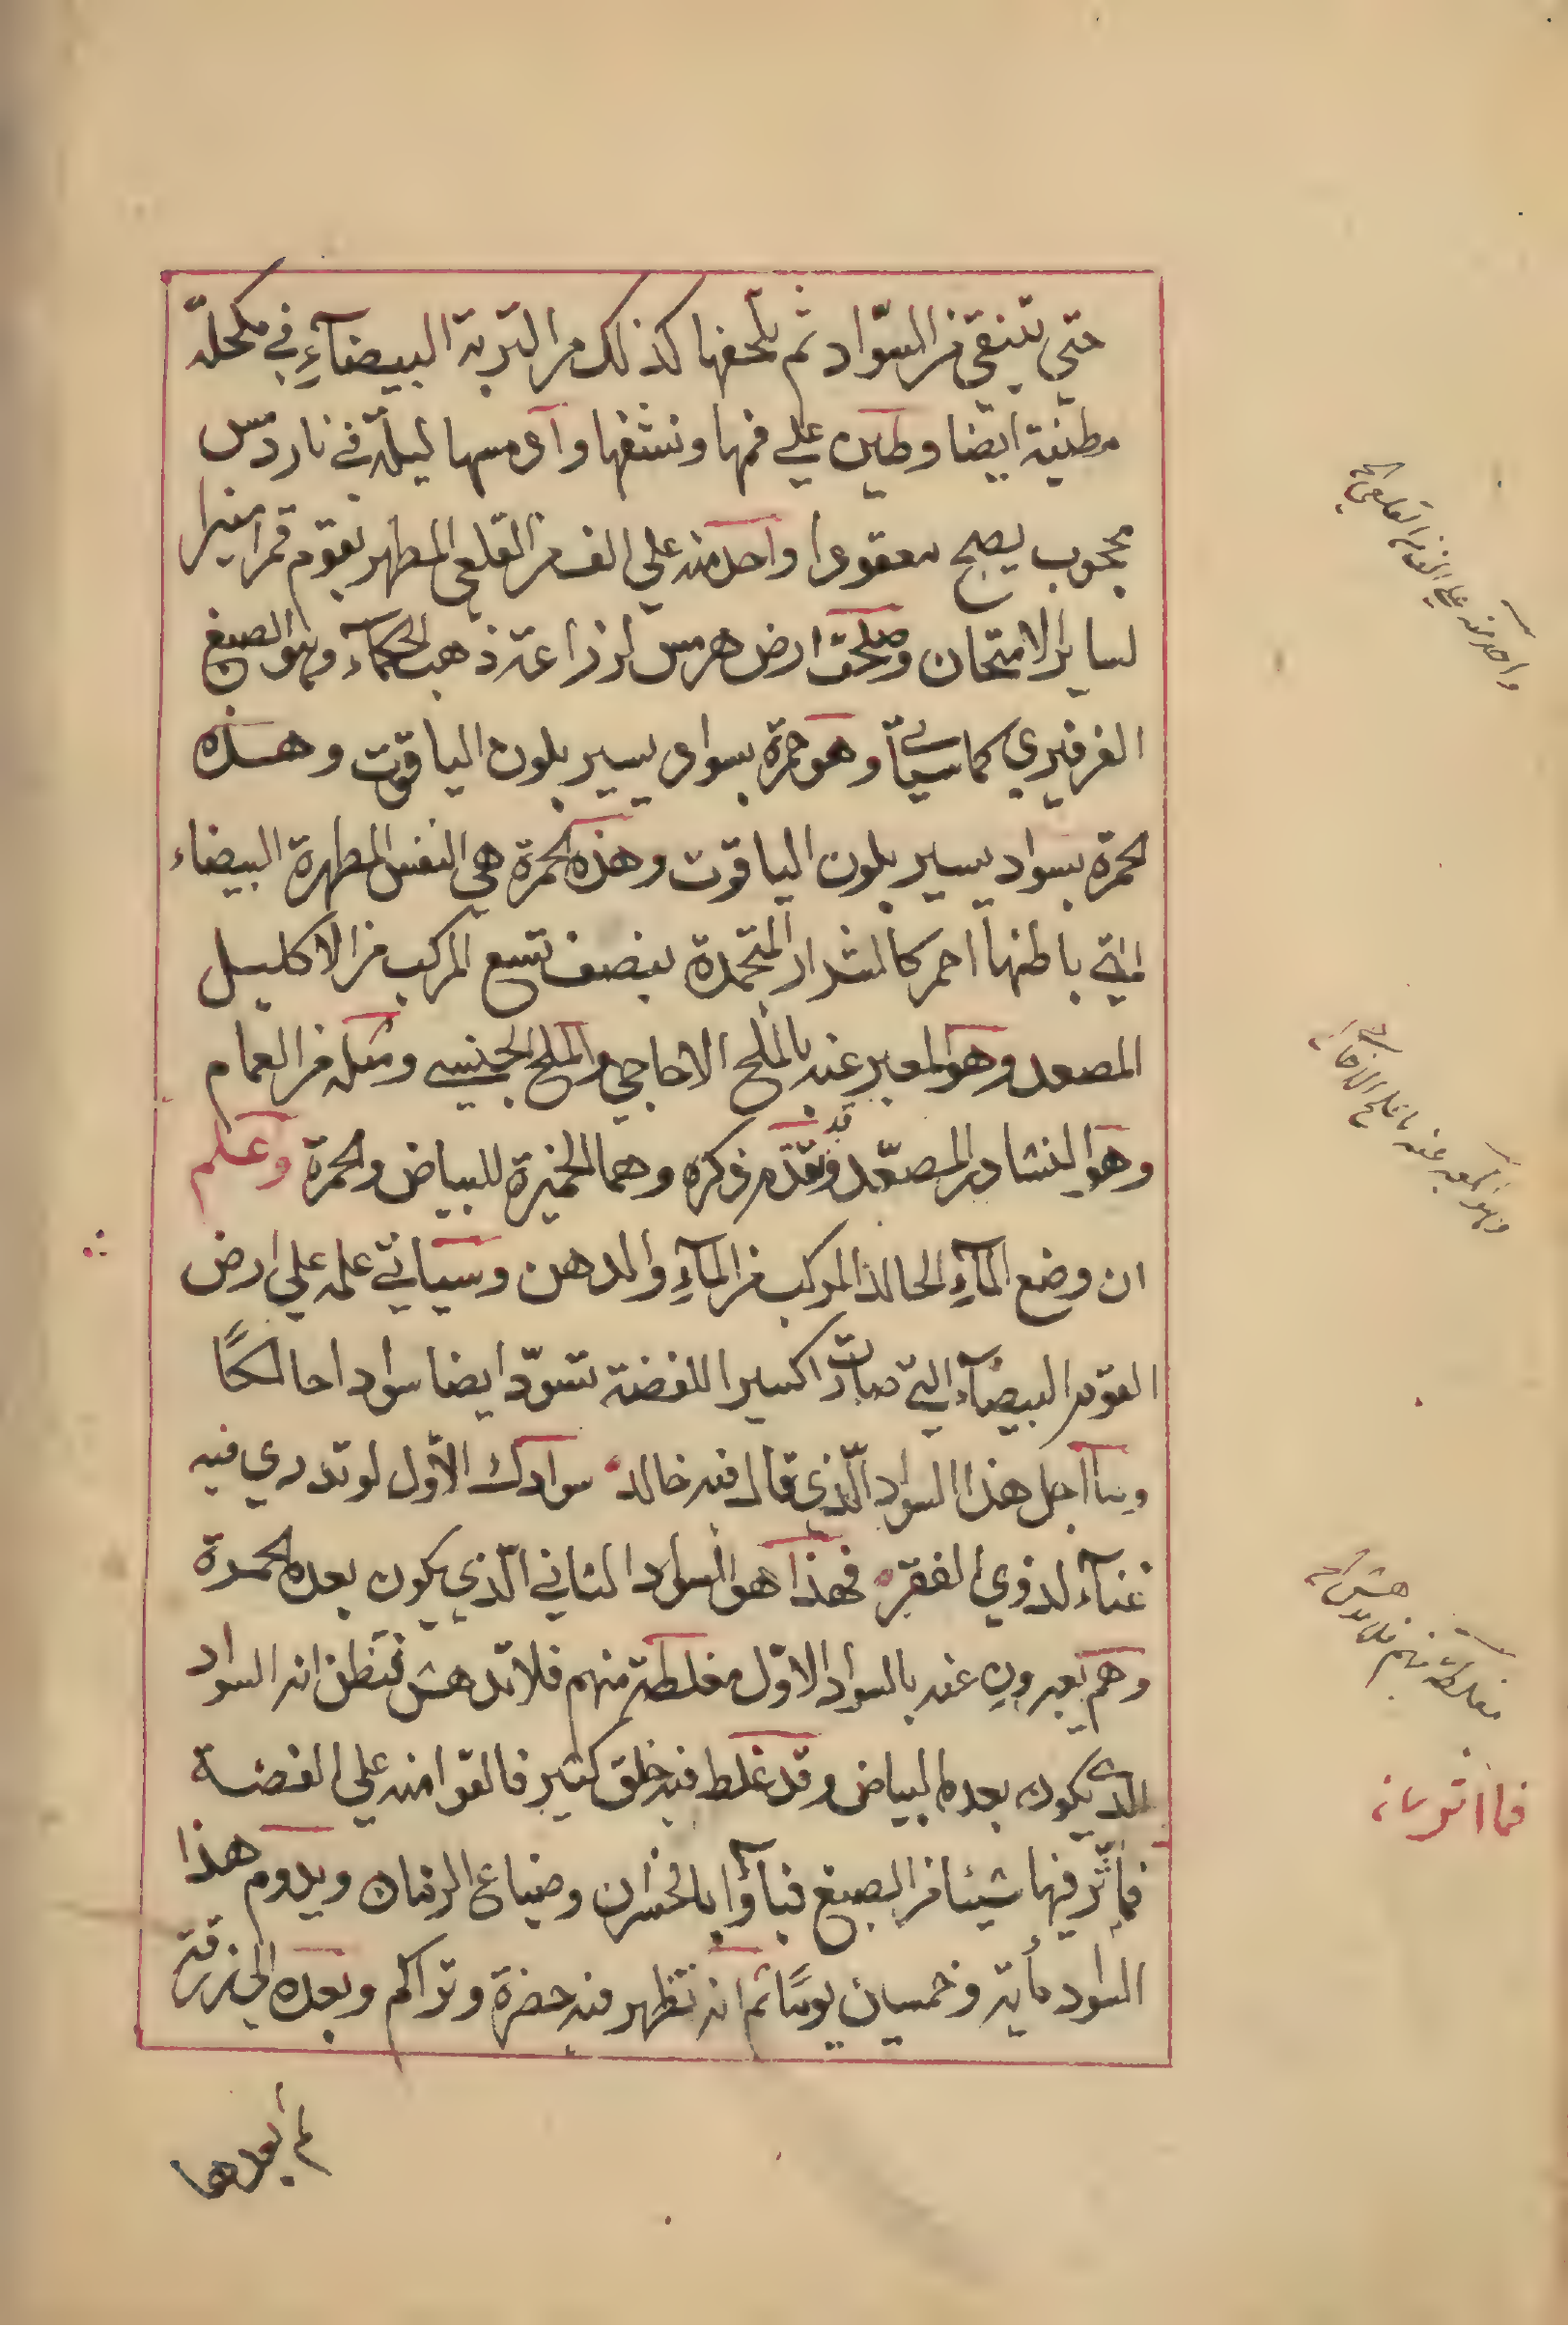 حتي تنقي من السّواد ثم يلحفها كذلك من التربة البيضآءِ في مكحلة
مطينة ايضا وطين علي فمها ونشفها وادمسها ليلة في نار دمس
محجوب يصبح معقودا واحد منه علي الف من القلعي المطهر يقوم قمرا منيرا
لساير الامتحان وصلحت ارض هرمس لزراعة ذهب الحكمآء وهو الصبغ
الفرفيري كما سيأتي وهو حمرة بسواد يسير بلون الياقوت وهذه
الحمرة بسواد يسير بلون الياقوت وهذه الحمرة هي النفس المطهرة البيضاء
التي باطنها احمر كالشرار المتجمدة بنصف تسع المركب من الاكليل
المصعد وهو المعبر عنه بالملح الاجاجي والملح الجنسي ومثله من العمام
وهو النشادر المصعّد وقد تقدّم ذكره وهما الخميرة للبياض والحمرة وعلم
ان وضع المآءِ الخالد المركب من المآءِ والدهن وسياتي علمه علي ارض
القوم البيضآء التي صارت اكسيرا للفضة تسوّد ايضا سوادا حالكًا
ومن اجل هذا السواد الّذي قال فيه خالد سوادك الاوّل لو تدري فيه
غنآء لذوي الفقر فهذا هو السواد الثاني الّذي يكون بعده الحمرة
وهم يعبرون عنه بالسواد الاوّل مغلطة منهم فلا تدهش فتظن انه السواد
الذي يكون بعده البياض وقد غلط فيه خلق كثير فالقوا منه علي الفضة
فما أثّر فيها شيئا من الصبغ فبآؤا بالخسران وضياع الزمان ويدوم هذا
السواد مأية وخمسين يومًا ثم انه تظهر فيه خضرة وتراكم وبعده الخزرقة
ثم بعدها
واحد منه علي الف من القلعي الخ
وهو المعبر عنه بالملح الاجاجي الخ
مغلطة منهم فلا تدهش الخ
فما اثر